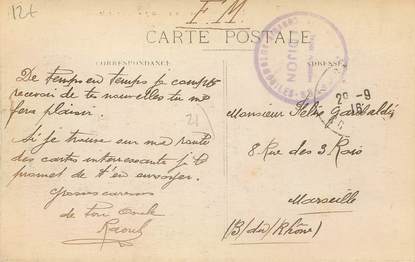 12t
F.M.
CARTE POSTALE
CORRESPONDANCE
ADRESSE
De temps en temps je compte
recevoir de tes nouvelles tu me
fera plaisir.
21
Si je trouve sur ma route
des cartes interressante je te
promet de t'en envoyer.
Grosses caresses
de ton Oncle
Raoul
DIJON
29-9
16
Monsieur Felix Garibaldi
8 Rue des 3 Rois
Marseille
(B/du/Rhône)